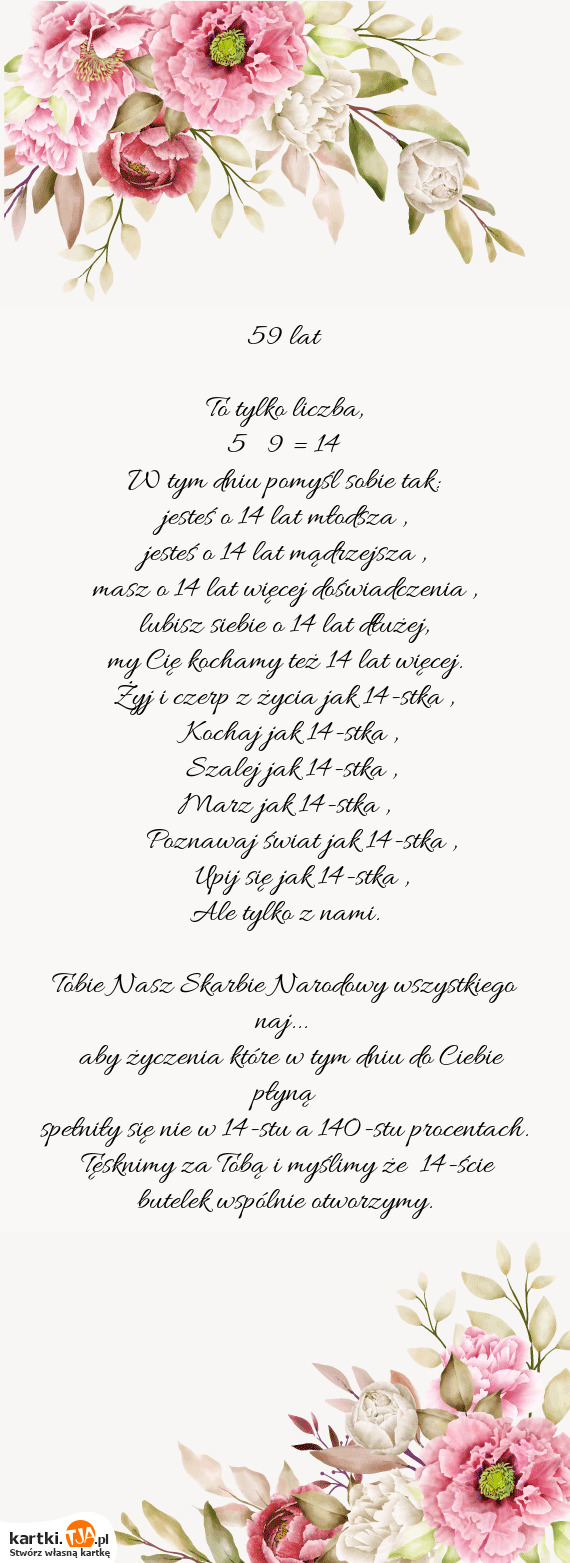 59 lat
To tylko liczba,
5 9 = 14
W tym dniu pomyśl sobie tak:
jesteś o 14 lat młodsza ,
jesteś o 14 lat mądrzejsza ,
masz o 14 lat więcej doświadczenia ,
lubisz siebie o 14 lat dłużej,
my Cię kochamy też 14 lat więcej.
Żyj i czerp z życia jak 14-stka ,
Kochaj jak 14-stka ,
Szalej jak 14-stka ,
Marz jak 14-stka ,
Poznawaj świat jak 14-stka ,
Upij się jak 14-stka ,
Ale tylko z nami.
Tobie Nasz Skarbie Narodowy wszystkiego
naj...
aby życzenia które w tym dniu do Ciebie
płyną
spełniły się nie w 14-stu a 140-stu procentach.
Tęsknimy za Tobą i myślimy że 14-ście
butelek wspólnie otworzymy.
kartki.TJA.pl
Stwórz własną kartkę